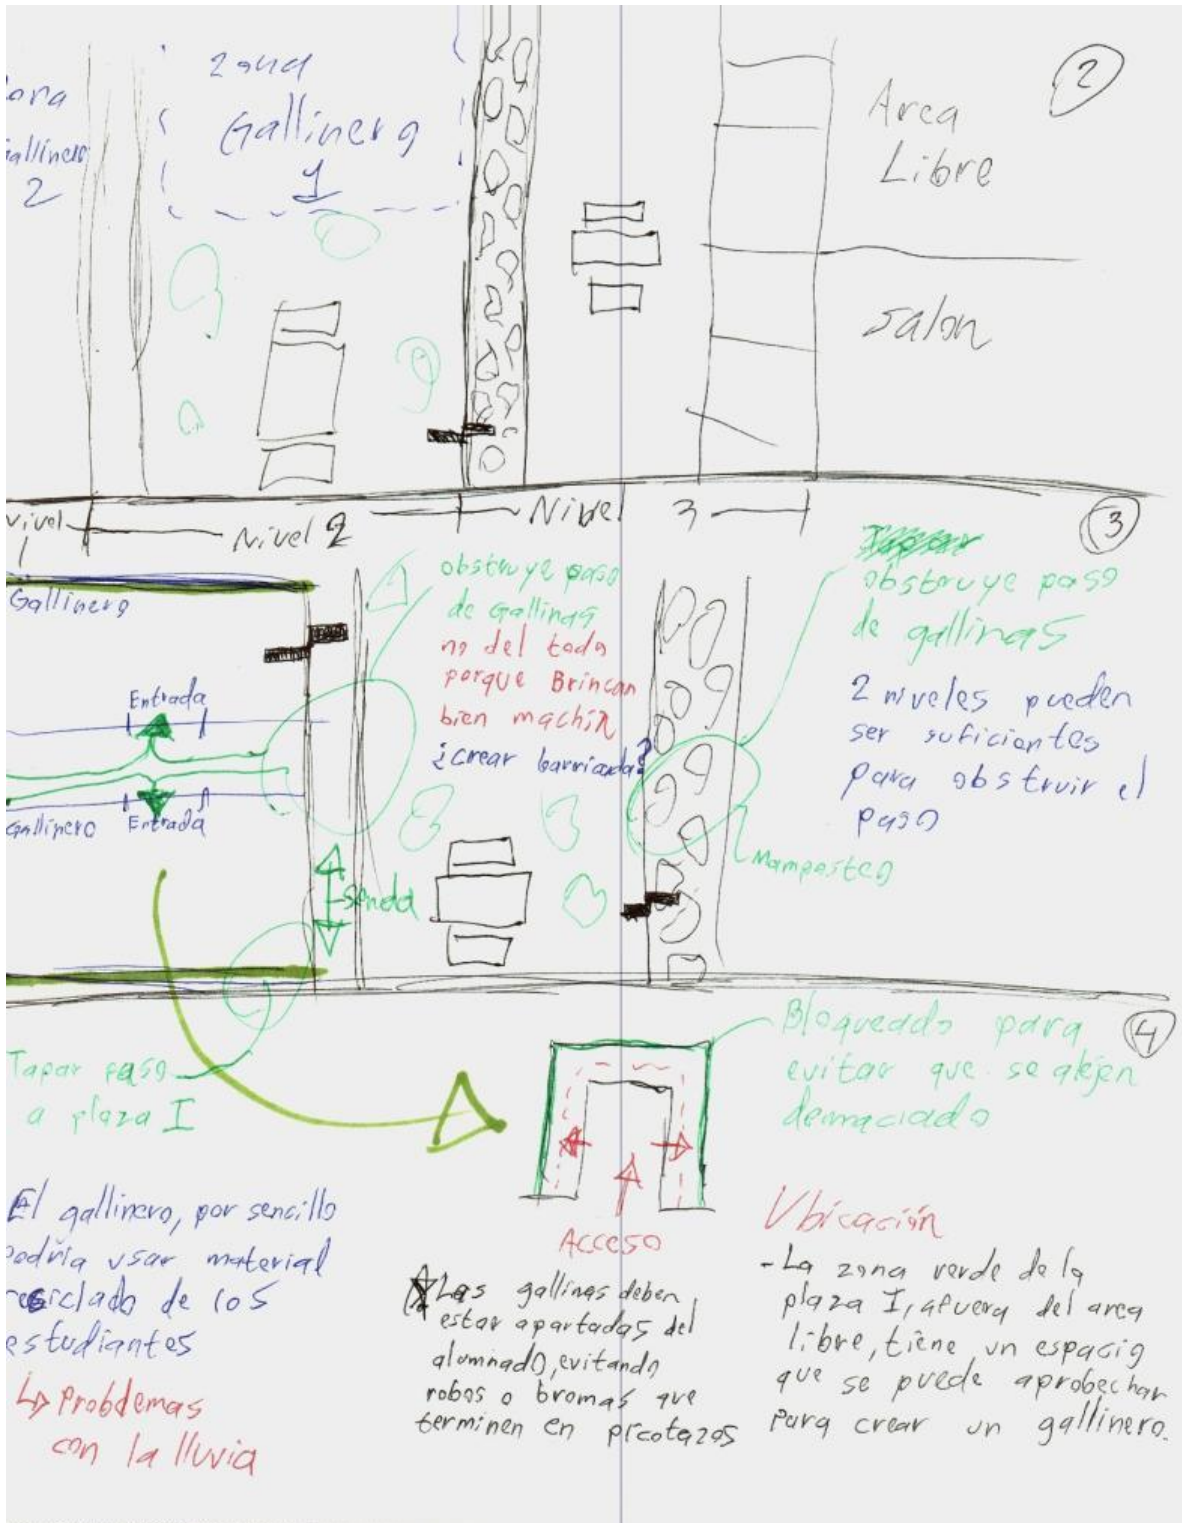 2
zona
Gallinero
1
Gallinero
2
Area
Libre
Salon
Nivel
1
Nivel 2
Nivel 3
3
Gallinero
Entrada
Entrada
Gallinero
obstruye paso
de Gallinas
no del todo
porque Brincan
bien machin
¿crear barriada?
obstruye paso
de gallinas
2 niveles pueden
ser suficientes
para obstruir el
paso
Mamposteo
senda
Tapar paso
a plaza I
4
Bloqueado para
evitar que se alejen
demaciado
Acceso
El gallinero, por sencillo
podria usar material
resiclado de los
estudiantes
Probdemas
con la lluvia
Las gallinas deben
estar apartadas del
alumnado, evitando
robos o bromas que
terminen en picotazos
Ubicación
- La zona verde de la
plaza I, afuera del area
libre, tiene un espacio
que se puede aprobechar
para crear un gallinero.